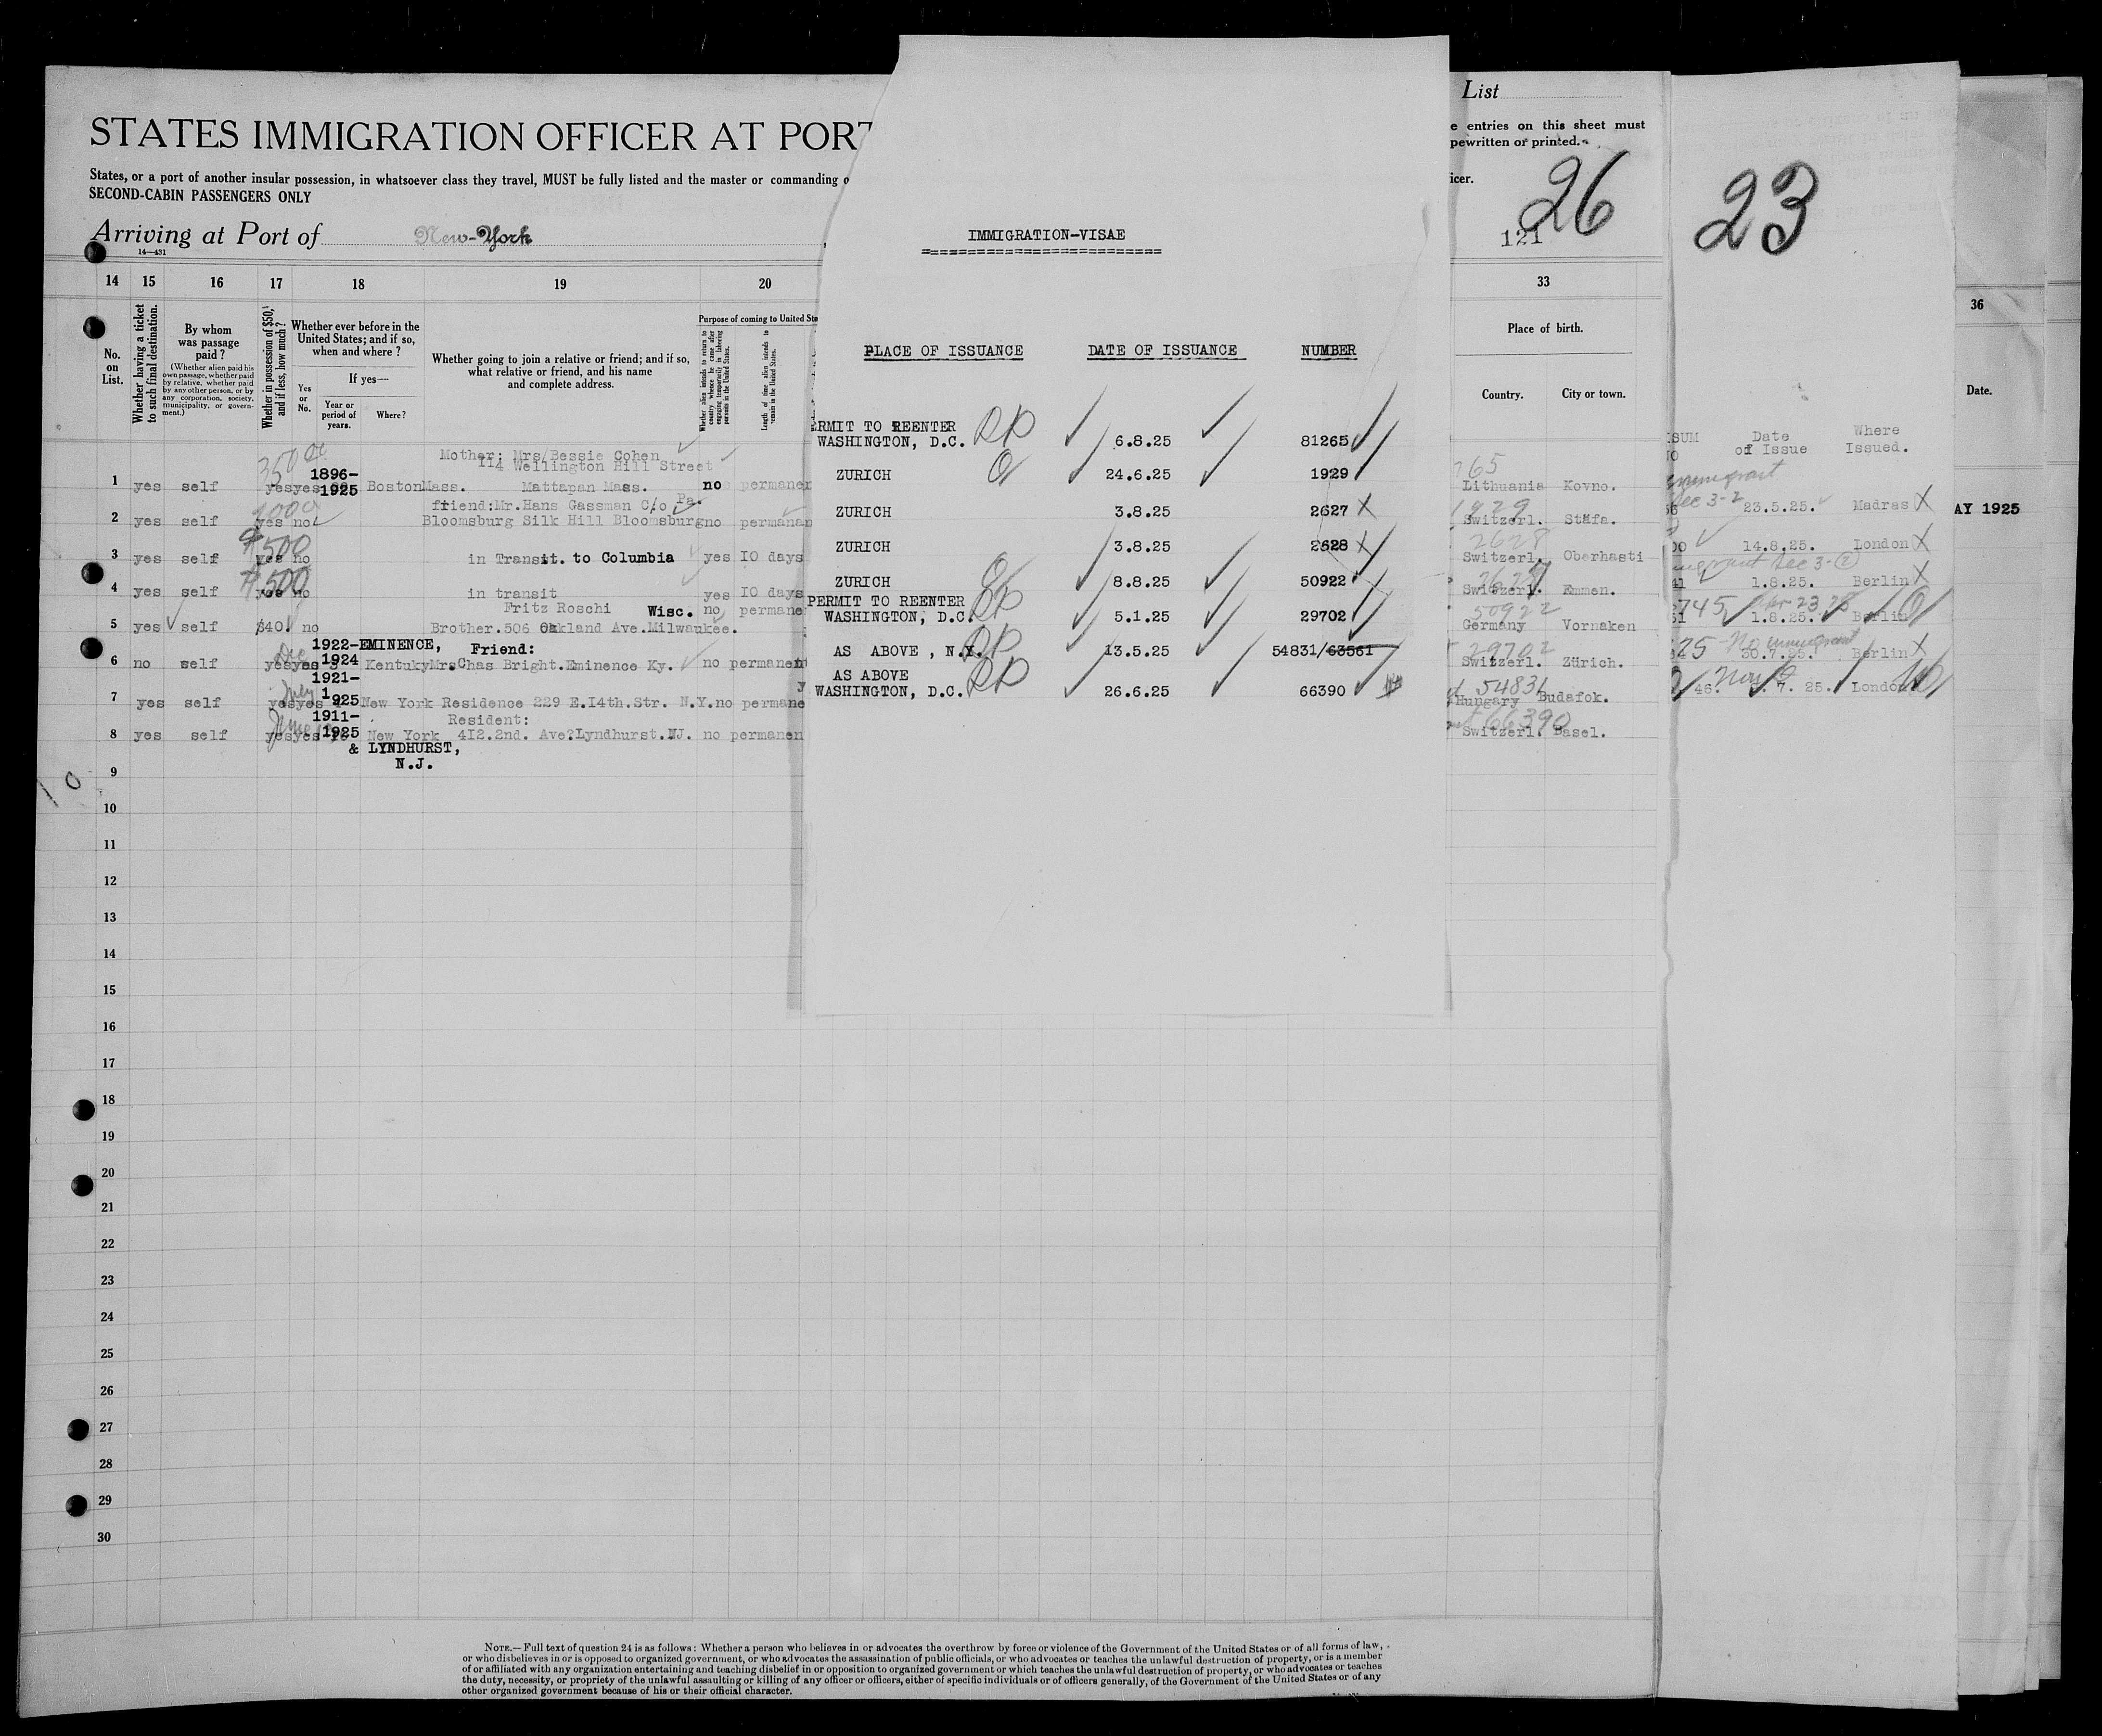 List
STATES IMMIGRATION OFFICER AT PORT
e entries on this sheet must
pewritten or printed.
States, or a port of another insular possession, in whatsoever class they travel, MUST be fully listed and the master or commanding o
icer.
SECOND-CABIN PASSENGERS ONLY
26
23
121
Arriving at Port of New-York
14—431
IMMIGRATION-VISAE
14 15 16 17 18 19 20
33
36
No. on List.
Whether having a ticket to such final destination.
By whom was passage paid?
(Whether alien paid his own passage, whether paid by relative, whether paid by any other person, or by any corporation, society, municipality, or government.)
Whether in possession of $50, and if less, how much?
Whether ever before in the United States; and if so, when and where?
If yes—
Yes or No.
Year or period of years.
Where?
Whether going to join a relative or friend; and if so, what relative or friend, and his name and complete address.
Purpose of coming to United Sta
Whether alien intends to return to country whence he came after engaging temporarily in laboring pursuits in the United States.
Length of time alien intends to remain in the United States.
Place of birth.
Country. City or town.
Date.
PLACE OF ISSUANCE DATE OF ISSUANCE NUMBER
RMIT TO REENTER
WASHINGTON, D.C. 6.8.25 81265
ZURICH 24.6.25 1929
ZURICH 3.8.25 2627 X
ZURICH 3.8.25 2628 X
ZURICH 8.8.25 50922
PERMIT TO REENTER
WASHINGTON, D.C. 5.1.25 29702
AS ABOVE , N.Y. 13.5.25 54831/63561
AS ABOVE
WASHINGTON, D.C. 26.6.25 66390
Mother: Mrs/Bessie Cohen
114 Wellington Hill Street
350
1896-
1 yes self yes yes 1925 Boston Mass. Mattapan Mass. no permanen
765
Lithuania Kovno.
friend:Mr.Hans Gassman C/o Pa.
2 yes self yes no Bloomsburg Silk Hill Bloomsburg no permanan
1929
Switzerl. Stäfa.
$500
3 yes self yes no in Transit. to Columbia yes 10 days
2628
Switzerl. Oberhasti
$500
4 yes self yes no in transit yes 10 days
Switzerl. Emmen.
Fritz Roschi Wisc. no permane
5 yes self $40. no Brother.506 Oakland Ave.Milwaukee.
50922
Germany Vornaken
1922-EMINENCE, Friend:
6 no self yes yes 1924 Kentuky Mrs.Chas Bright.Eminence Ky. no permanen
29702
Switzerl. Zürich.
1921-
July 1
7 yes self yes yes 925 New York Residence 229 E.14th.Str. N.Y. no permane
54831
Hungary Budafok.
1911- Resident:
June
8 yes self yes yes 1925 New York 412.2nd. Ave?Lyndhurst.NJ. no permanen
66390
Switzerl. Basel.
& LYNDHURST,
N.J.
Date of Issue
Where Issued.
23.5.25. Madras X
AY 1925
14.8.25. London X
Sec 3-2
1.8.25. Berlin X
745
1.8.25. Berlin
25 No immigrant
30.7.25. Berlin X
46. 7. 25. London
9
10
11
12
13
14
15
16
17
18
19
20
21
22
23
24
25
26
27
28
29
30
NOTE.—Full text of question 24 is as follows: Whether a person who believes in or advocates the overthrow by force or violence of the Government of the United States or of all forms of law,
or who disbelieves in or is opposed to organized government, or who advocates the assassination of public officials, or who advocates or teaches the unlawful destruction of property, or is a member
of or affiliated with any organization entertaining and teaching disbelief in or opposition to organized government or which teaches the unlawful destruction of property, or who advocates or teaches
the duty, necessity, or propriety of the unlawful assaulting or killing of any officer or officers, either of specific individuals or of officers generally, of the Government of the United States or of any
other organized government because of his or their official character.